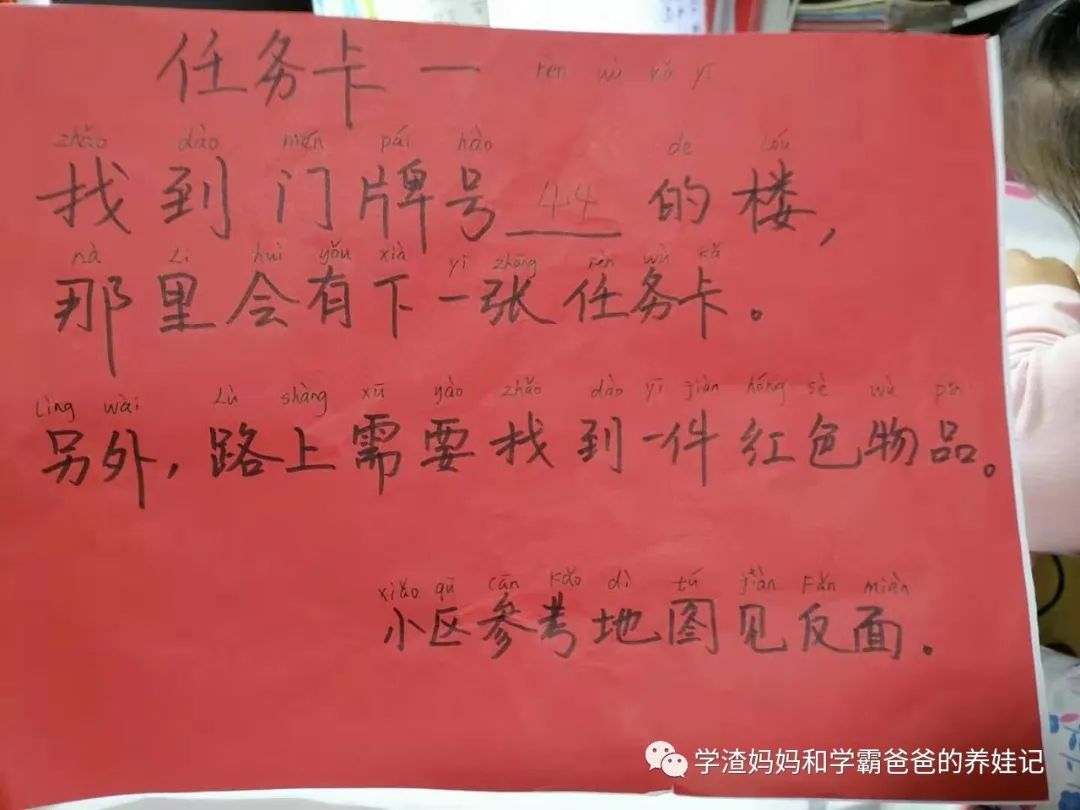 任务卡一 rèn wù kǎ yī
zhǎo dào mén pái hào de lóu
找到门牌号 44 的楼，
nà lǐ huì yǒu xià yī zhāng rèn wù kǎ
那里会有下一张任务卡。
lìng wài lù shàng xū yào zhǎo dào yī jiàn hóng sè wù pǐn
另外，路上需要找到一件红色物品。
xiǎo qū cān kǎo dì tú jiàn fǎn miàn
小区参考地图见反面。
学渣妈妈和学霸爸爸的养娃记